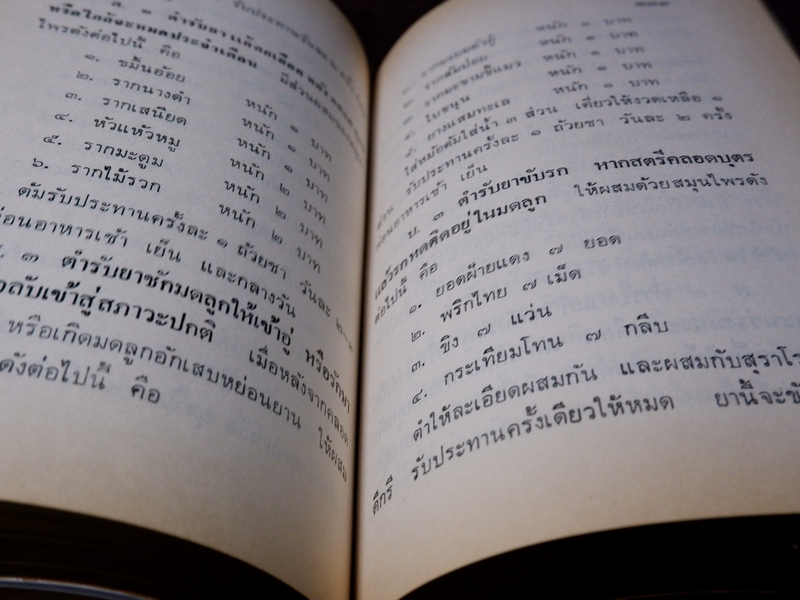 หรือใกล้จะหมดประจำเดือน
ไพรดังต่อไปนี้ คือ
๑. ขมิ้นอ้อย หนัก ๑ บาท
๒. รากนางดำ หนัก ๑ บาท
๓. รากเสนียด หนัก ๑ บาท
๔. หัวแห้วหมู หนัก ๒ บาท
๕. รากมะตูม หนัก ๒ บาท
๖. รากไม้รวก หนัก ๒ บาท
ต้มรับประทานครั้งละ ๑ ถ้วยชา วันละ
ก่อนอาหารเช้า เย็น และกลางวัน
๓ ตำรับยาชักมดลูกให้เข้าอู่ หรือรักษา
กลับเข้าสู่สภาวะปกติ เมื่อหลังจากคลอด
หรือเกิดมดลูกอักเสบหย่อนยาน ให้ผสม
ดังต่อไปนี้ คือ
หนัก ๑ บาท
รากส้มป่อย หนัก ๑ บาท
รากมะขามขี้แมว หนัก ๑ บาท
ใบขนุน หนัก ๑ บาท
ยางแสมทะเล
ใส่หม้อต้มใส่น้ำ ๓ ส่วน เคี่ยวให้งวดเหลือ ๑
ส่วน รับประทานครั้งละ ๑ ถ้วยชา วันละ ๒ ครั้ง
ก่อนอาหารเช้า เย็น
ข. ๓ ตำรับยาขับรก หากสตรีคลอดบุตร
แล้วรกหดติดอยู่ในมดลูก ให้ผสมด้วยสมุนไพรดัง
ต่อไปนี้ คือ
๑. ยอดฝ้ายแดง ๗ ยอด
๒. พริกไทย ๗ เม็ด
๓. ขิง ๗ แว่น
๔. กระเทียมโทน ๗ กลีบ
ตำให้ละเอียดผสมกัน และผสมกับสุราโร
ดีกรี รับประทานครั้งเดียวให้หมด ยานี้จะขับ